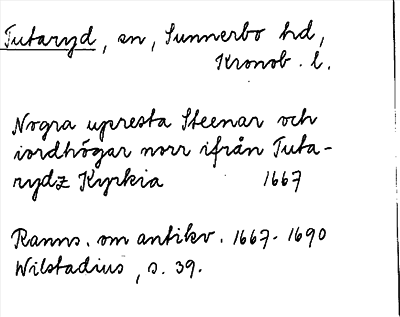 Tutaryd, sn, Sunnerbo hd,
Kronob. l.
Nogra upresta Steenar och
iordhögar norr ifrån Tuta-
rydz Kyrkia 1667
Ranns. om antikv. 1667-1690
Wilstadius, s. 39.